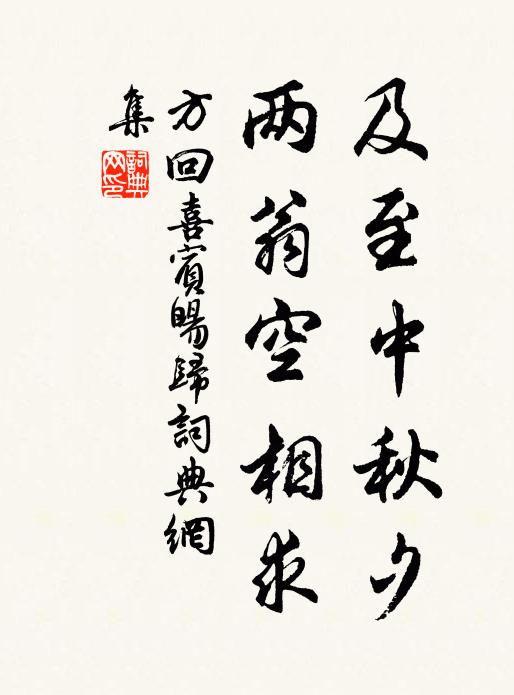 及至中秋夕
两翁空相求
方回喜賓暘歸詞典網
集
詞典
网印